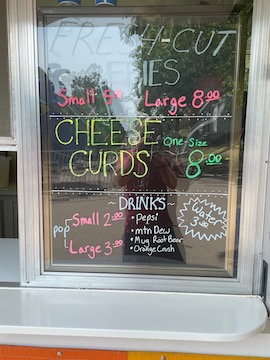 FRESH-CUT
FRIES
Small 5.00 Large 8.00
CHEESE One-Size
CURDS 8.00
~DRINKS~
pop
Small 2.00
Large 3.00
• Pepsi
• mtn Dew
• Mug Root Beer
• Orange Crush
Water
3.00